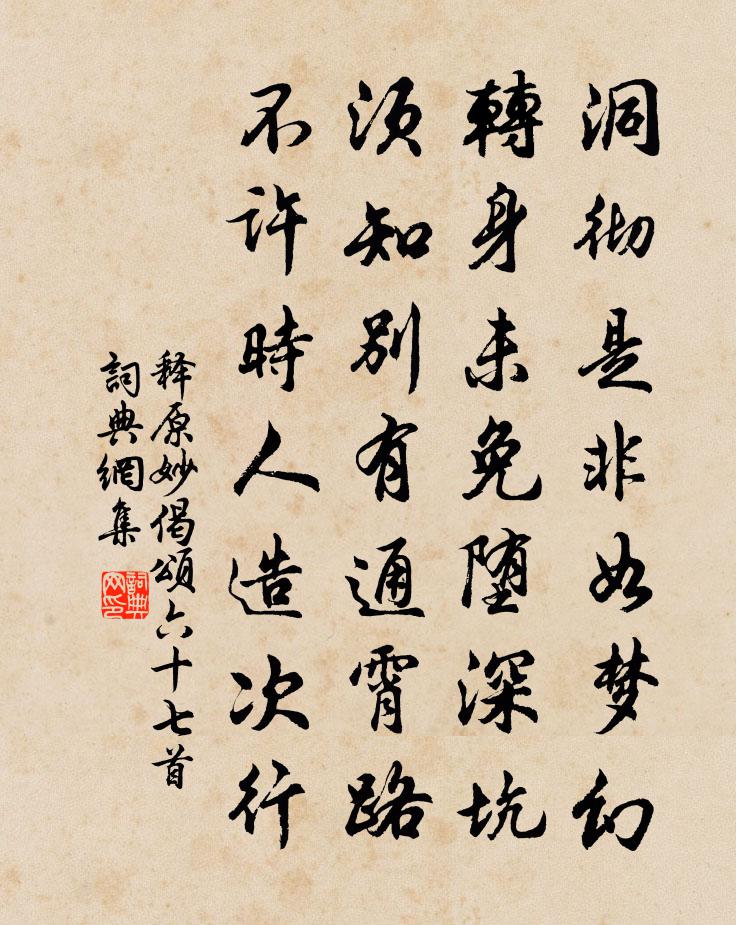 洞彻是非如梦幻
轉身未免堕深坑
须知别有通霄路
不许時人造次行
释原妙偈颂六十七首
詞典網集
詞典
网印